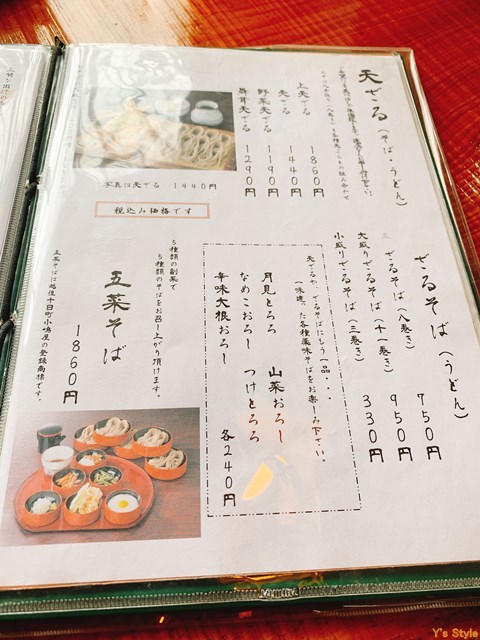 天ざる（そば・うどん）
上天ざる 1860円
天ざる 1440円
野菜天ざる 1190円
舞茸天ざる 1290円
写真は天ざる 1440円
税込み価格です
ざるそば（うどん）
ざるそば（八巻き） 750円
大盛りざるそば（十一巻き） 950円
小盛りざるそば（三巻き） 330円
天ざるや、ざるそばにもう一品・・
（一味違った各種薬味そばをお楽しみ下さい。
月見とろろ 山菜おろし
なめこおろし つけとろろ
辛味大根おろし 各240円
5種類の副菜で
5種類のそばをお召し上がり頂けます。
五菜そば
1860円
五菜そばは越後十日町小嶋屋の登録商標です。
Y's Style